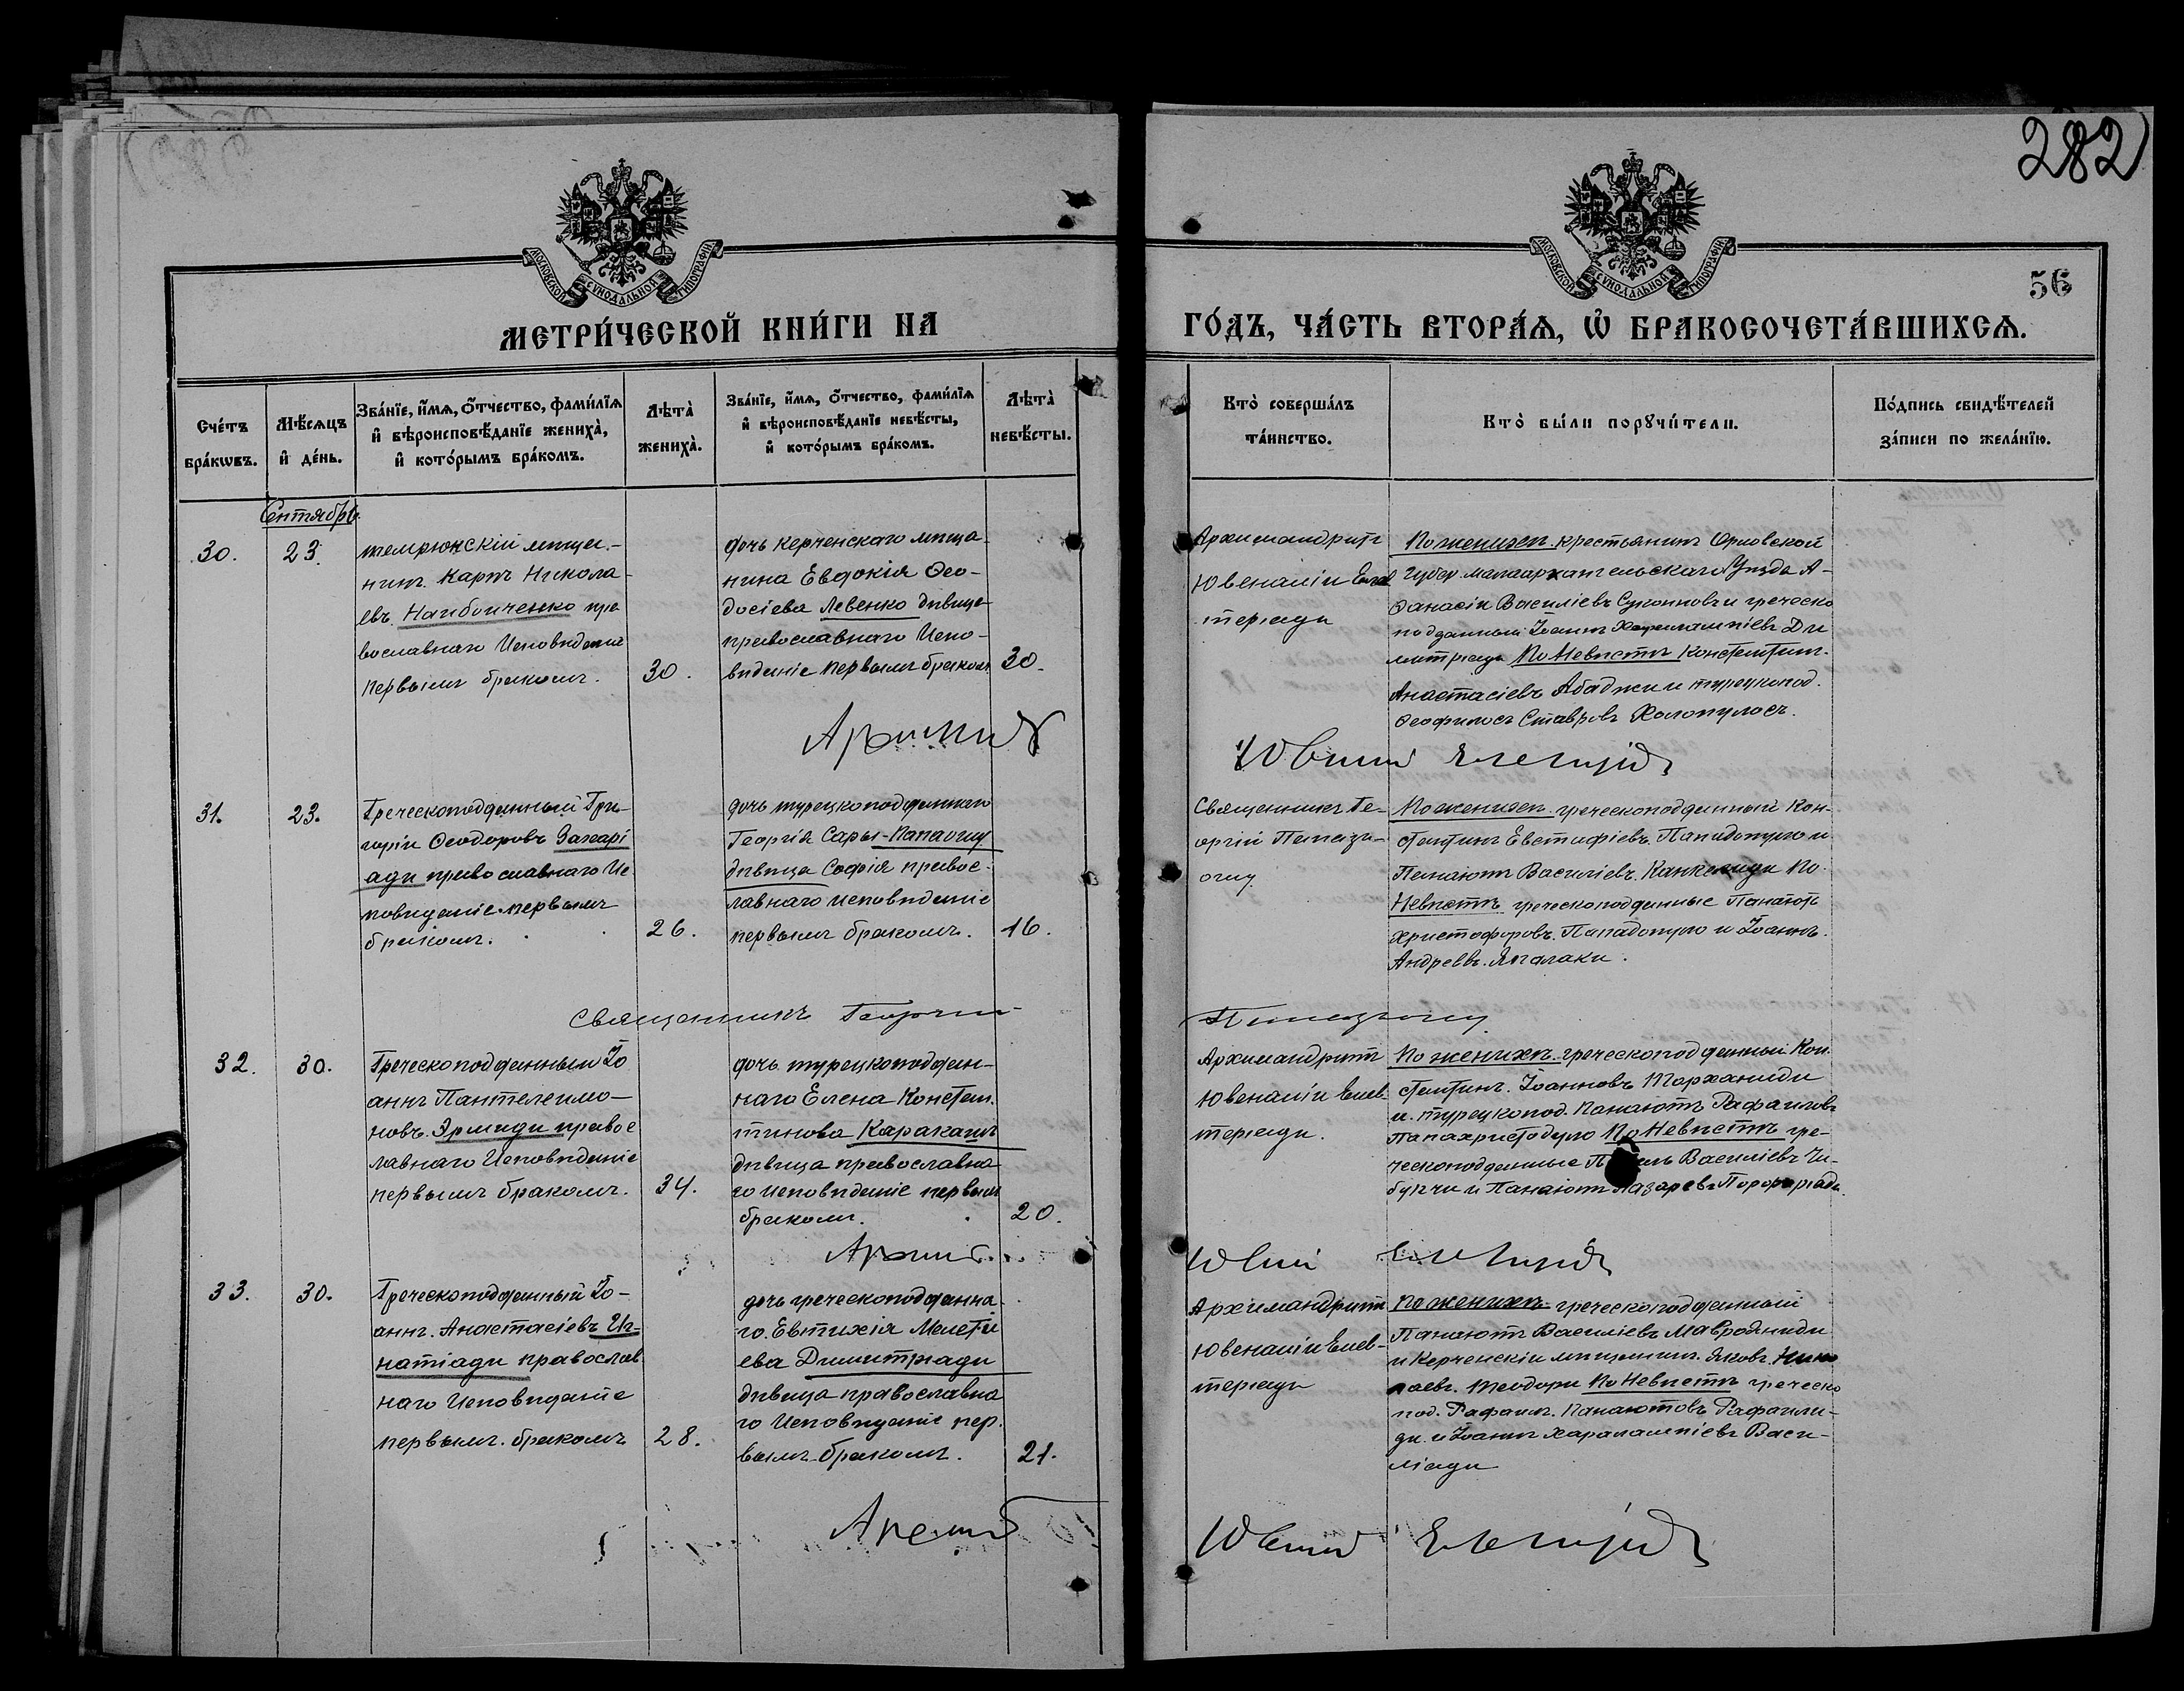 282
56
МОСКОВСКОЙ СУНОДАЛЬНОЙ ТИПОГРАФІИ
МОСКОВСКОЙ СУНОДАЛЬНОЙ ТИПОГРАФІИ
МЕТРИ́ЧЕСКОЙ КНИ́ГИ НА
ГО́ДЪ, ЧА́СТЬ ВТОРА́Ѧ, Ѡ҆ БРАКОСОЧЕТА́ВШИХСѦ.
Сче́тъ
бра́кѡвъ.
Мѣ́сѧцъ
и҆ де́нь.
Зва́нїе, и҆́мѧ, ѻ҆́тчество, фами́лїѧ
и҆ вѣроисповѣ́данїе жениха̀,
и҆ кото́рымъ бра́комъ.
Лѣта̀
жениха̀.
Зва́нїе, и҆́мѧ, ѻ҆́тчество, фами́лїѧ
и҆ вѣроисповѣ́данїе невѣ́сты,
и҆ кото́рымъ бра́комъ.
Лѣта̀
невѣ́сты.
Кто̀ соверша́лъ
та́инство.
Кто̀ бы́ли порꙋчи́тели.
По́дпись свидѣ́телей
за́писи по жела́нїю.
Сентябрь.
30.
23.
темрюкскій мѣща-
нинъ Карпъ Никола-
евъ Наибоиченко пра
вославнаго Исповѣданіе
первымъ бракомъ.
30.
дочь керченскаго мѣща-
нина Евдокія Ѳео-
досіева Левенко дѣвица
православнаго Испо-
вѣданіе первымъ бракомъ
30.
Архимандритъ
Ювеналій Елев
теріади
По женихѣ крестьянинъ Орловской
Губер. малаархангельскаго Уѣзда А-
ѳанасій Василіевъ Сухоновъ и греческо
подданный Іоаннъ Харалампіевъ Ди
митріадъ По Невѣстѣ Константин.
Анастасіевъ Абаджи и турецкопод.
Ѳеофилосъ Ставровъ Халопулосъ.
Архим
Ювеналій Елевтеріадъ
31.
23.
Греческоподданный Гри-
горій Ѳеодоровъ Захарі
ади православнаго Ис
повѣданіе первымъ
бракомъ.
26.
дочь турецкоподданнаго
Георгія Сары-Папаоглу
дѣвица Софія правос-
лавнаго исповѣданіе
первымъ бракомъ.
16.
Священникъ Ге-
оргій Пенази-
оглу.
По женихѣ греческоподданный Кон-
стантинъ Евстафіевъ Пападопуло и
Панаіотъ Василіевъ Канкелиди По
Невѣстѣ греческоподданные Панаіотъ
Христофоровъ Пападопуло и Іоаннъ
Андреевъ Япалаки.
Священникъ Георгій
Пеназиоглу
32.
30.
Греческоподданный Іо
аннъ Пантелеимо-
новъ Эрмиди правос
лавнаго Исповѣданіе
первымъ бракомъ.
34.
дочь турецкоподдан-
наго Елена Констан
тинова Каракашъ
дѣвица православна
го исповѣданіе первымъ
бракомъ.
20.
Архимандритъ
Ювеналій Елев
теріади.
По женихѣ греческоподданный Кон
стантинъ Іоанновъ Тарханиди
и турецкопод. Панаіотъ Рафаиловъ
Папахристодуло По Невѣстѣ гре-
ческоподданные Василіевъ Чи-
букчи и Панаіотъ Лазаревъ Порфиріадъ.
Архим
Ювеналій Елевтеріадъ
33.
30.
Греческоподданный Іо-
аннъ Анастасіевъ Иг-
натіади православ
наго Исповѣданіе
первымъ бракомъ
28.
дочь греческоподданна-
го Евтихія Мелети
ева Димитріади
дѣвица православна
го Исповѣданіе пер-
вымъ бракомъ.
21.
Архимандритъ
Ювеналій Елев-
теріади
По женихѣ греческоподданный
Панаіотъ Василіевъ Мавродиниди
и Керченскій мѣщанинъ Яковъ Нико
лаевъ Теодори По Невѣстѣ греческо
под. Рафаилъ Панаіотовъ Рафаили-
ди и Іоаннъ Харалампіевъ Васи-
ліади
Архим
Ювеналій Елевтеріадъ